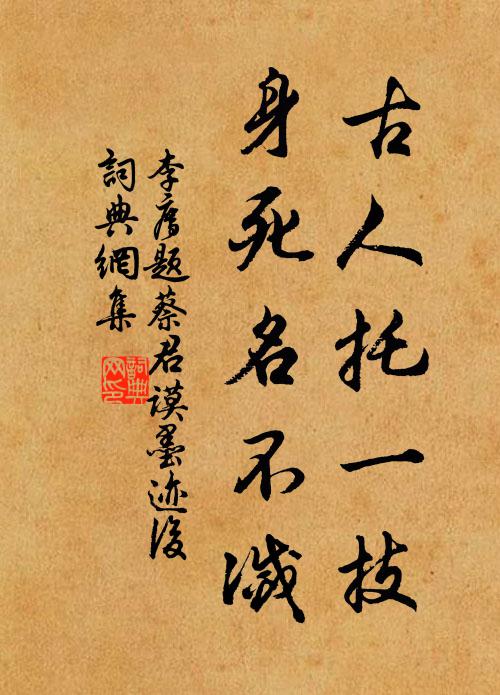 古人托一技
身死名不滅
李廌題蔡君謨墨迹後
詞典網集
詞典網印